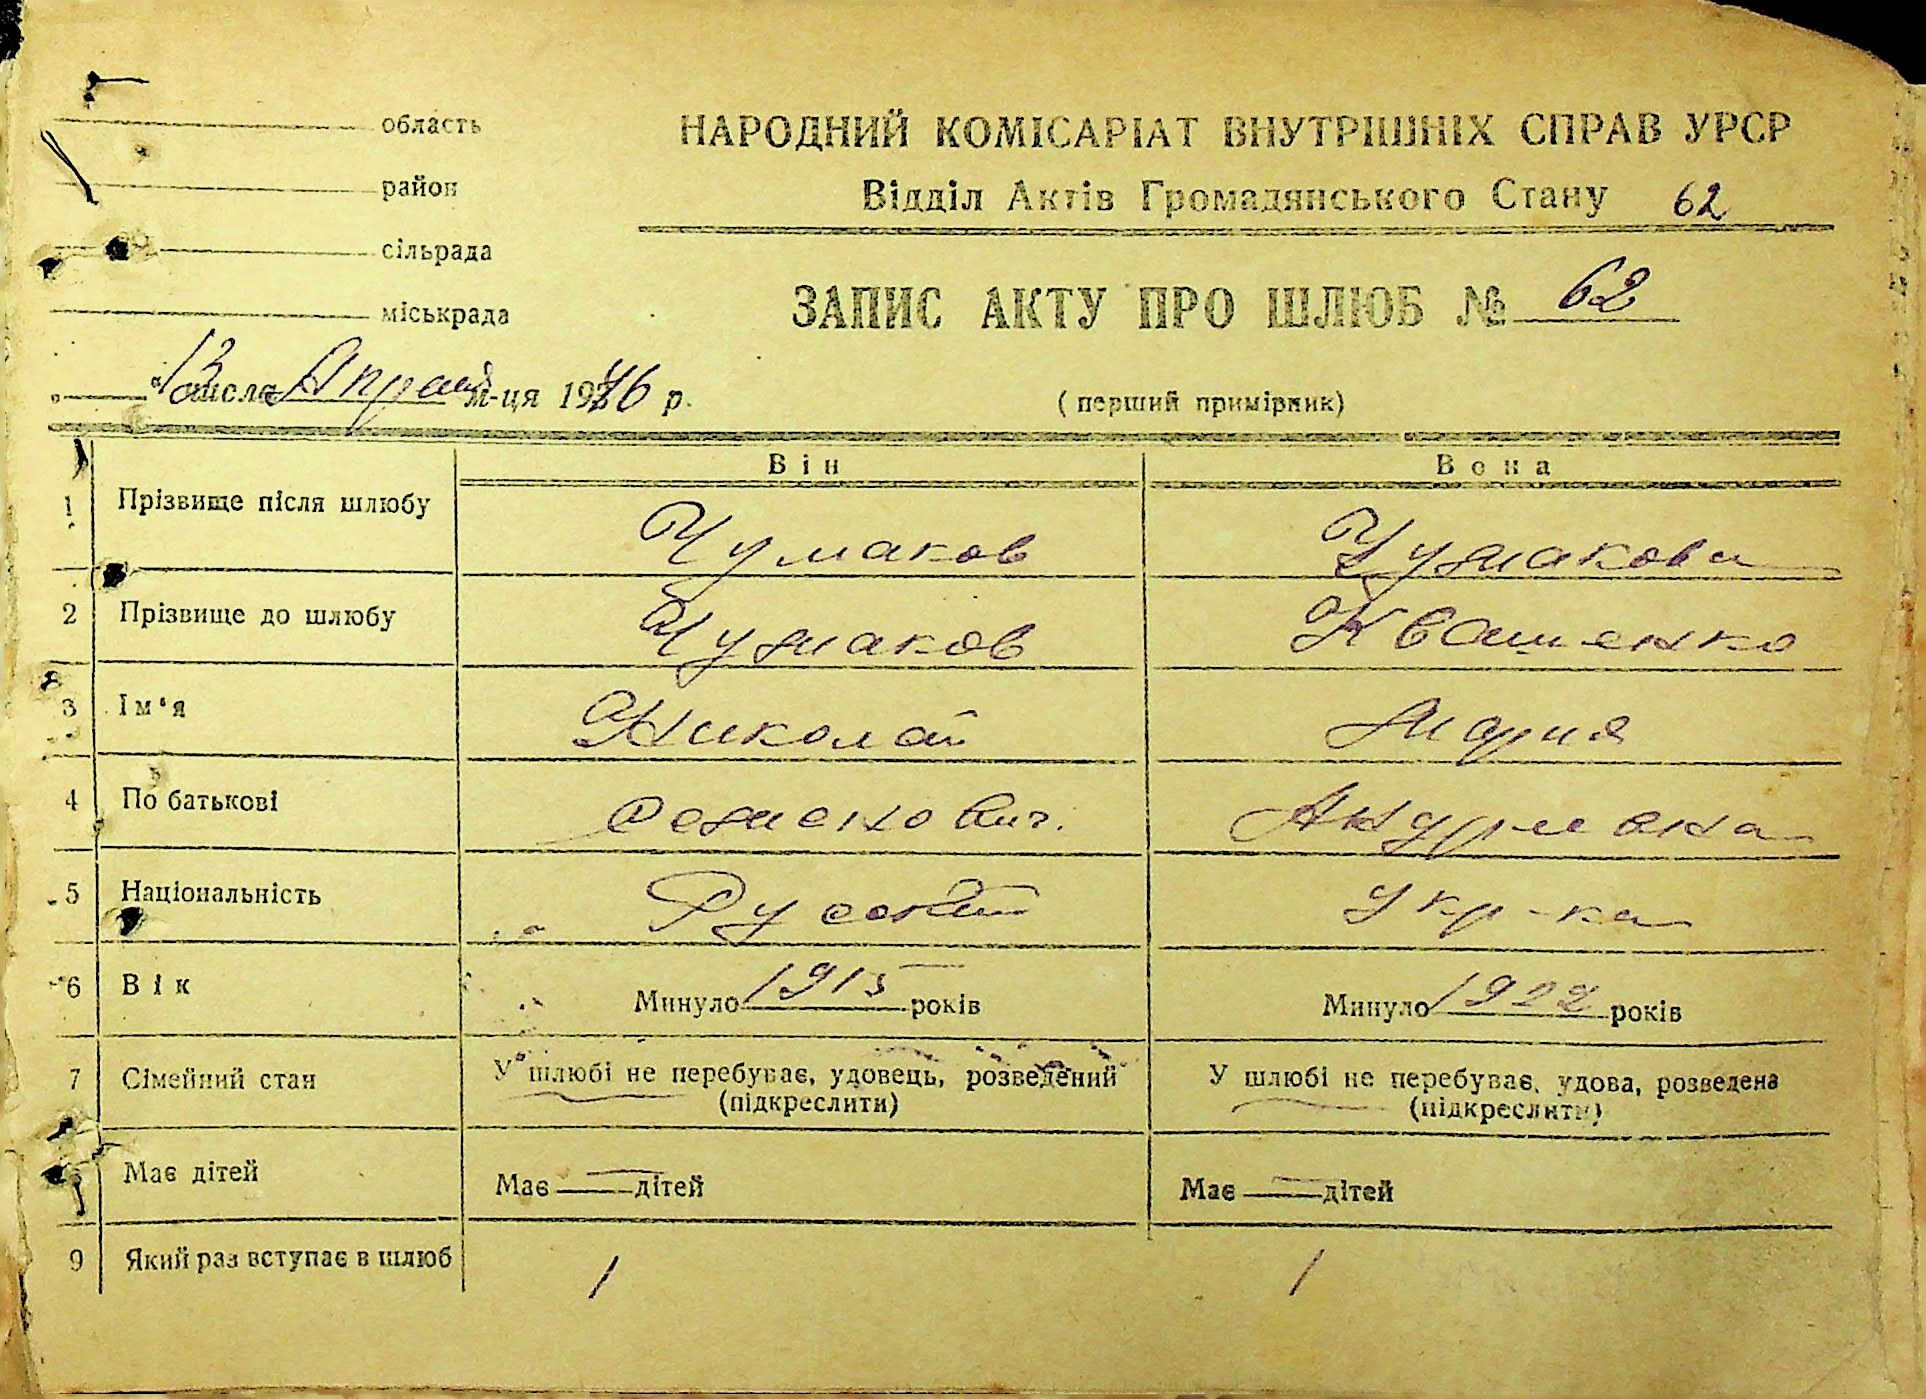 область
район
сільрада
міськрада
НАРОДНИЙ КОМІСАРІАТ ВНУТРІШНІХ СПРАВ УРСР
Відділ Актів Громадянського Стану 62
ЗАПИС АКТУ ПРО ШЛЮБ № 62
"13 числа Апреля м-ця 1946 р.
(перший примірник)
Він Вона
1 Прізвище після шлюбу Чумаков Чумакова
2 Прізвище до шлюбу Чумаков Квашенко
3 Ім'я Николай Мария
4 По батькові Семенович. Андреевна
5 Національність Русский Укр-ка
6 Вік Минуло 1915 років Минуло 1922 років
7 Сімейний стан У шлюбі не перебуває, удовець, розведений У шлюбі не перебуває, удова, розведена
(підкреслити) (підкреслити)
8 Має дітей Має — дітей Має — дітей
9 Який раз вступає в шлюб 1 1